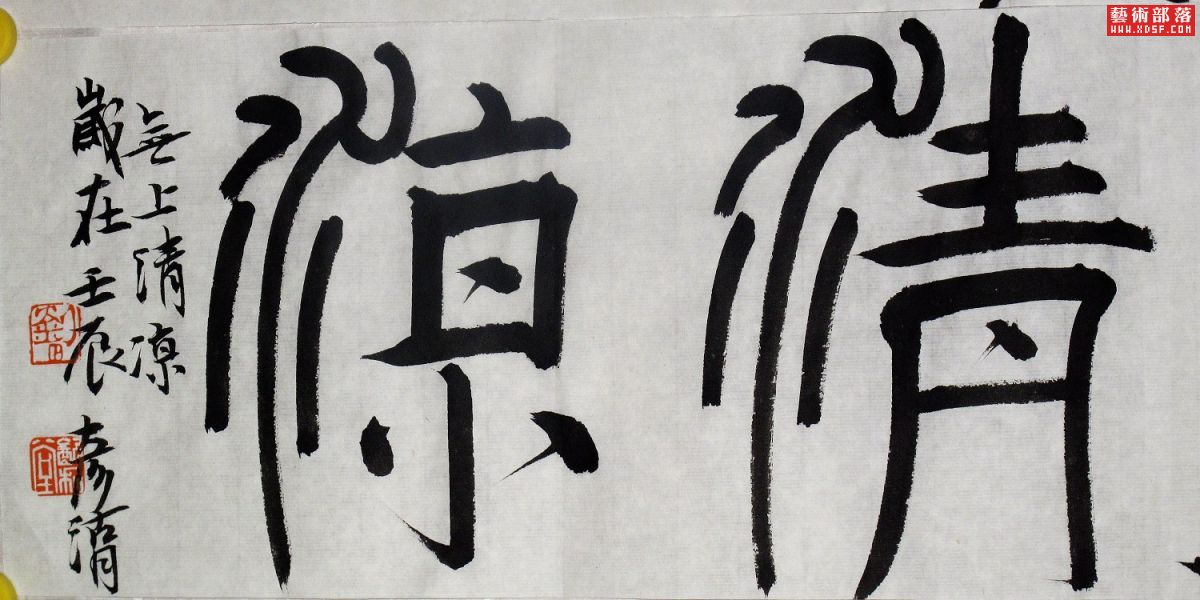 藝術部落
WWW.XDSF.COM
清涼
無上清涼
歲在壬辰 彥清